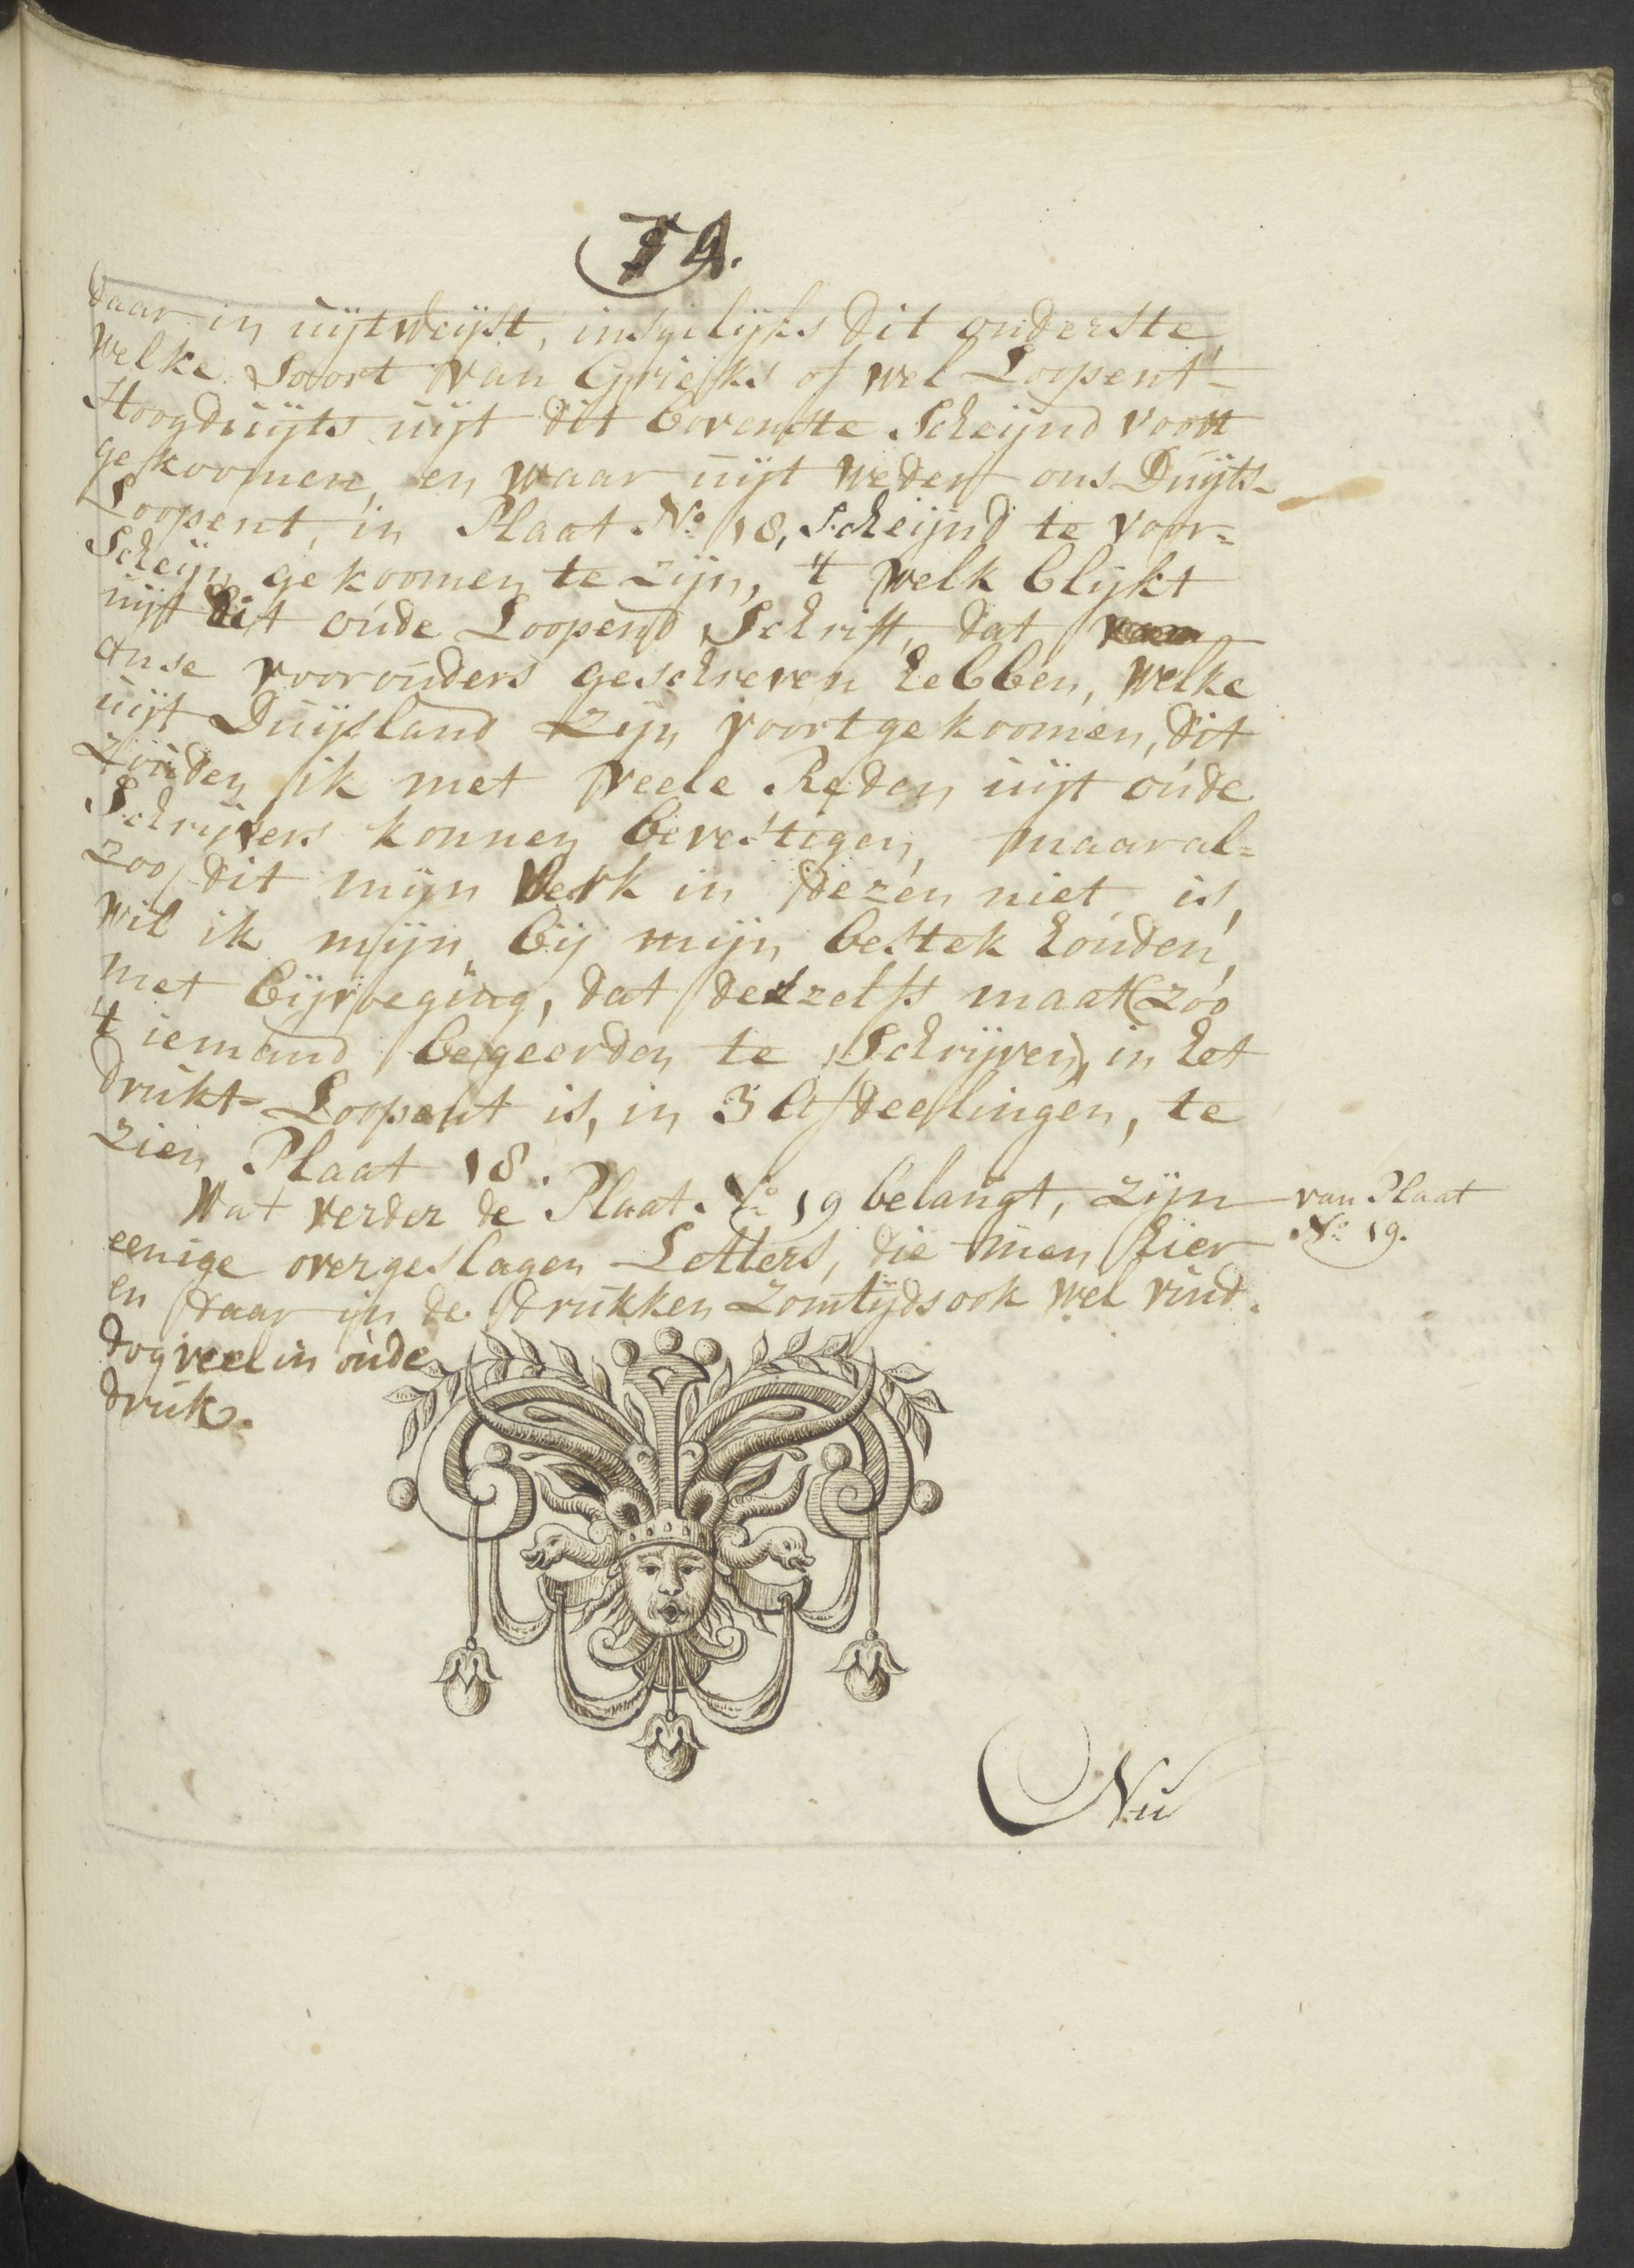 daar in uÿtweÿst, insgelÿks dit onderste,
welke Soort van Grieks of wel Loopent-
Hoogduÿts uÿt dit bovenste Scheÿnd voort
gekoomen, en waar uÿt weder ons Duÿts-
Loopent, in Plaat No. 18, Scheÿnd te voor=
Scheÿn gekoomen te zÿn, 't welk blÿkt
uÿt dit oude Loopend Schrift, dat
onse voorouders geschreven hebben, welke
uÿt Duÿsland zÿn voortgekoomen, dit
Zouden ik met veele Reden uÿt oude
Schrÿvers konnen bevestigen, maar al=
zoo dit mÿn Werk in dezen niet is,
wil ik mÿn bÿ mÿn bestek houden,
met bÿvoeging, dat deszelfs maat (zoo
't iemand begeerden te Schrÿven), in het
drukt-Loopent is, in 3 Afdeelingen, te
zien Plaat 18.
Wat verder de Plaat No. 19 belangt, zÿn
van Plaat
No. 19.
eenige overgeslagen Letters, die men hier
en daar in de drukken Zomtÿds ook wel vind.
dog veel in oude
druk.
Nu